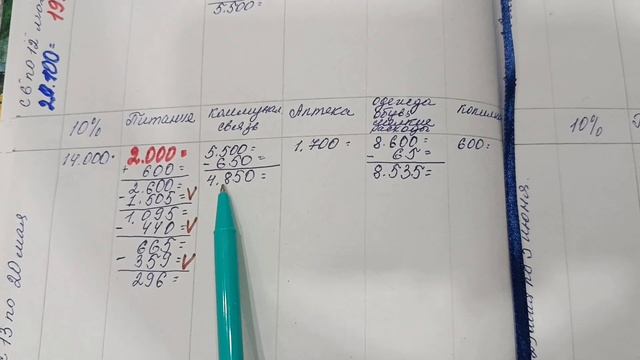 5.500=
с 6 по 12 мая
20.100=
10%
Питание
Коммунал
связь
Аптека
одежда
обувь
мелкие
расходы
Копилка
10%
14.000=
2.000=
+ 600=
2.600=
- 1.505=
1.095=
- 440=
665=
- 359=
296=
5.500=
- 650=
4.850=
1.700=
8.600=
- 65=
8.535=
600=
с 13 по 20 мая